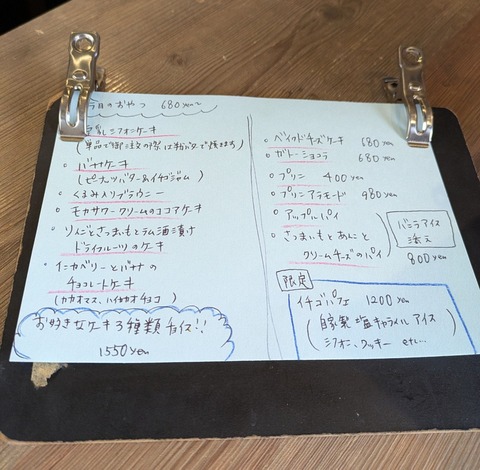 今日のおやつ 680yen〜
豆乳シフォンケーキ
(単品で御注文の際は粉パターで頂きます)
◦ バナナケーキ
(ピーナッツバター&イチゴジャム)
◦ くるみ入りブラウニー
◦ モカサワークリームのココアケーキ
◦ りんごとさつまいもとラム酒漬け
ドライフルーツのケーキ
◦ クランベリーとバナナの
チョコレートケーキ
(カカオマス、ハイカカオチョコ)
お好きなケーキ3種類チョイス!!
1550yen
◦ ベイクドチーズケーキ 680yen
◦ ガトーショコラ 680yen
◦ プリン 400yen
◦ プリンアラモード 980yen
◦ アップルパイ
◦ さつまいもとあんこと
クリームチーズのパイ
バニラアイス
添え
800yen
限定
イチゴパフェ 1200yen
(自家製塩キャラメルアイス
シフォン、クッキー etc...)